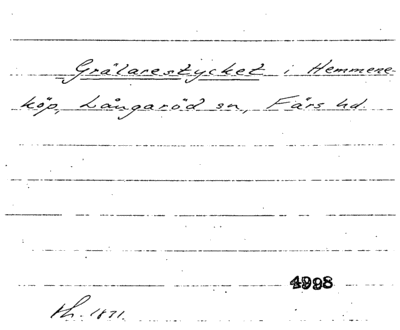 Grälarestycket i Hemmene-
köp, Långaröd sn, Färs hd.
4998
th. 1871.